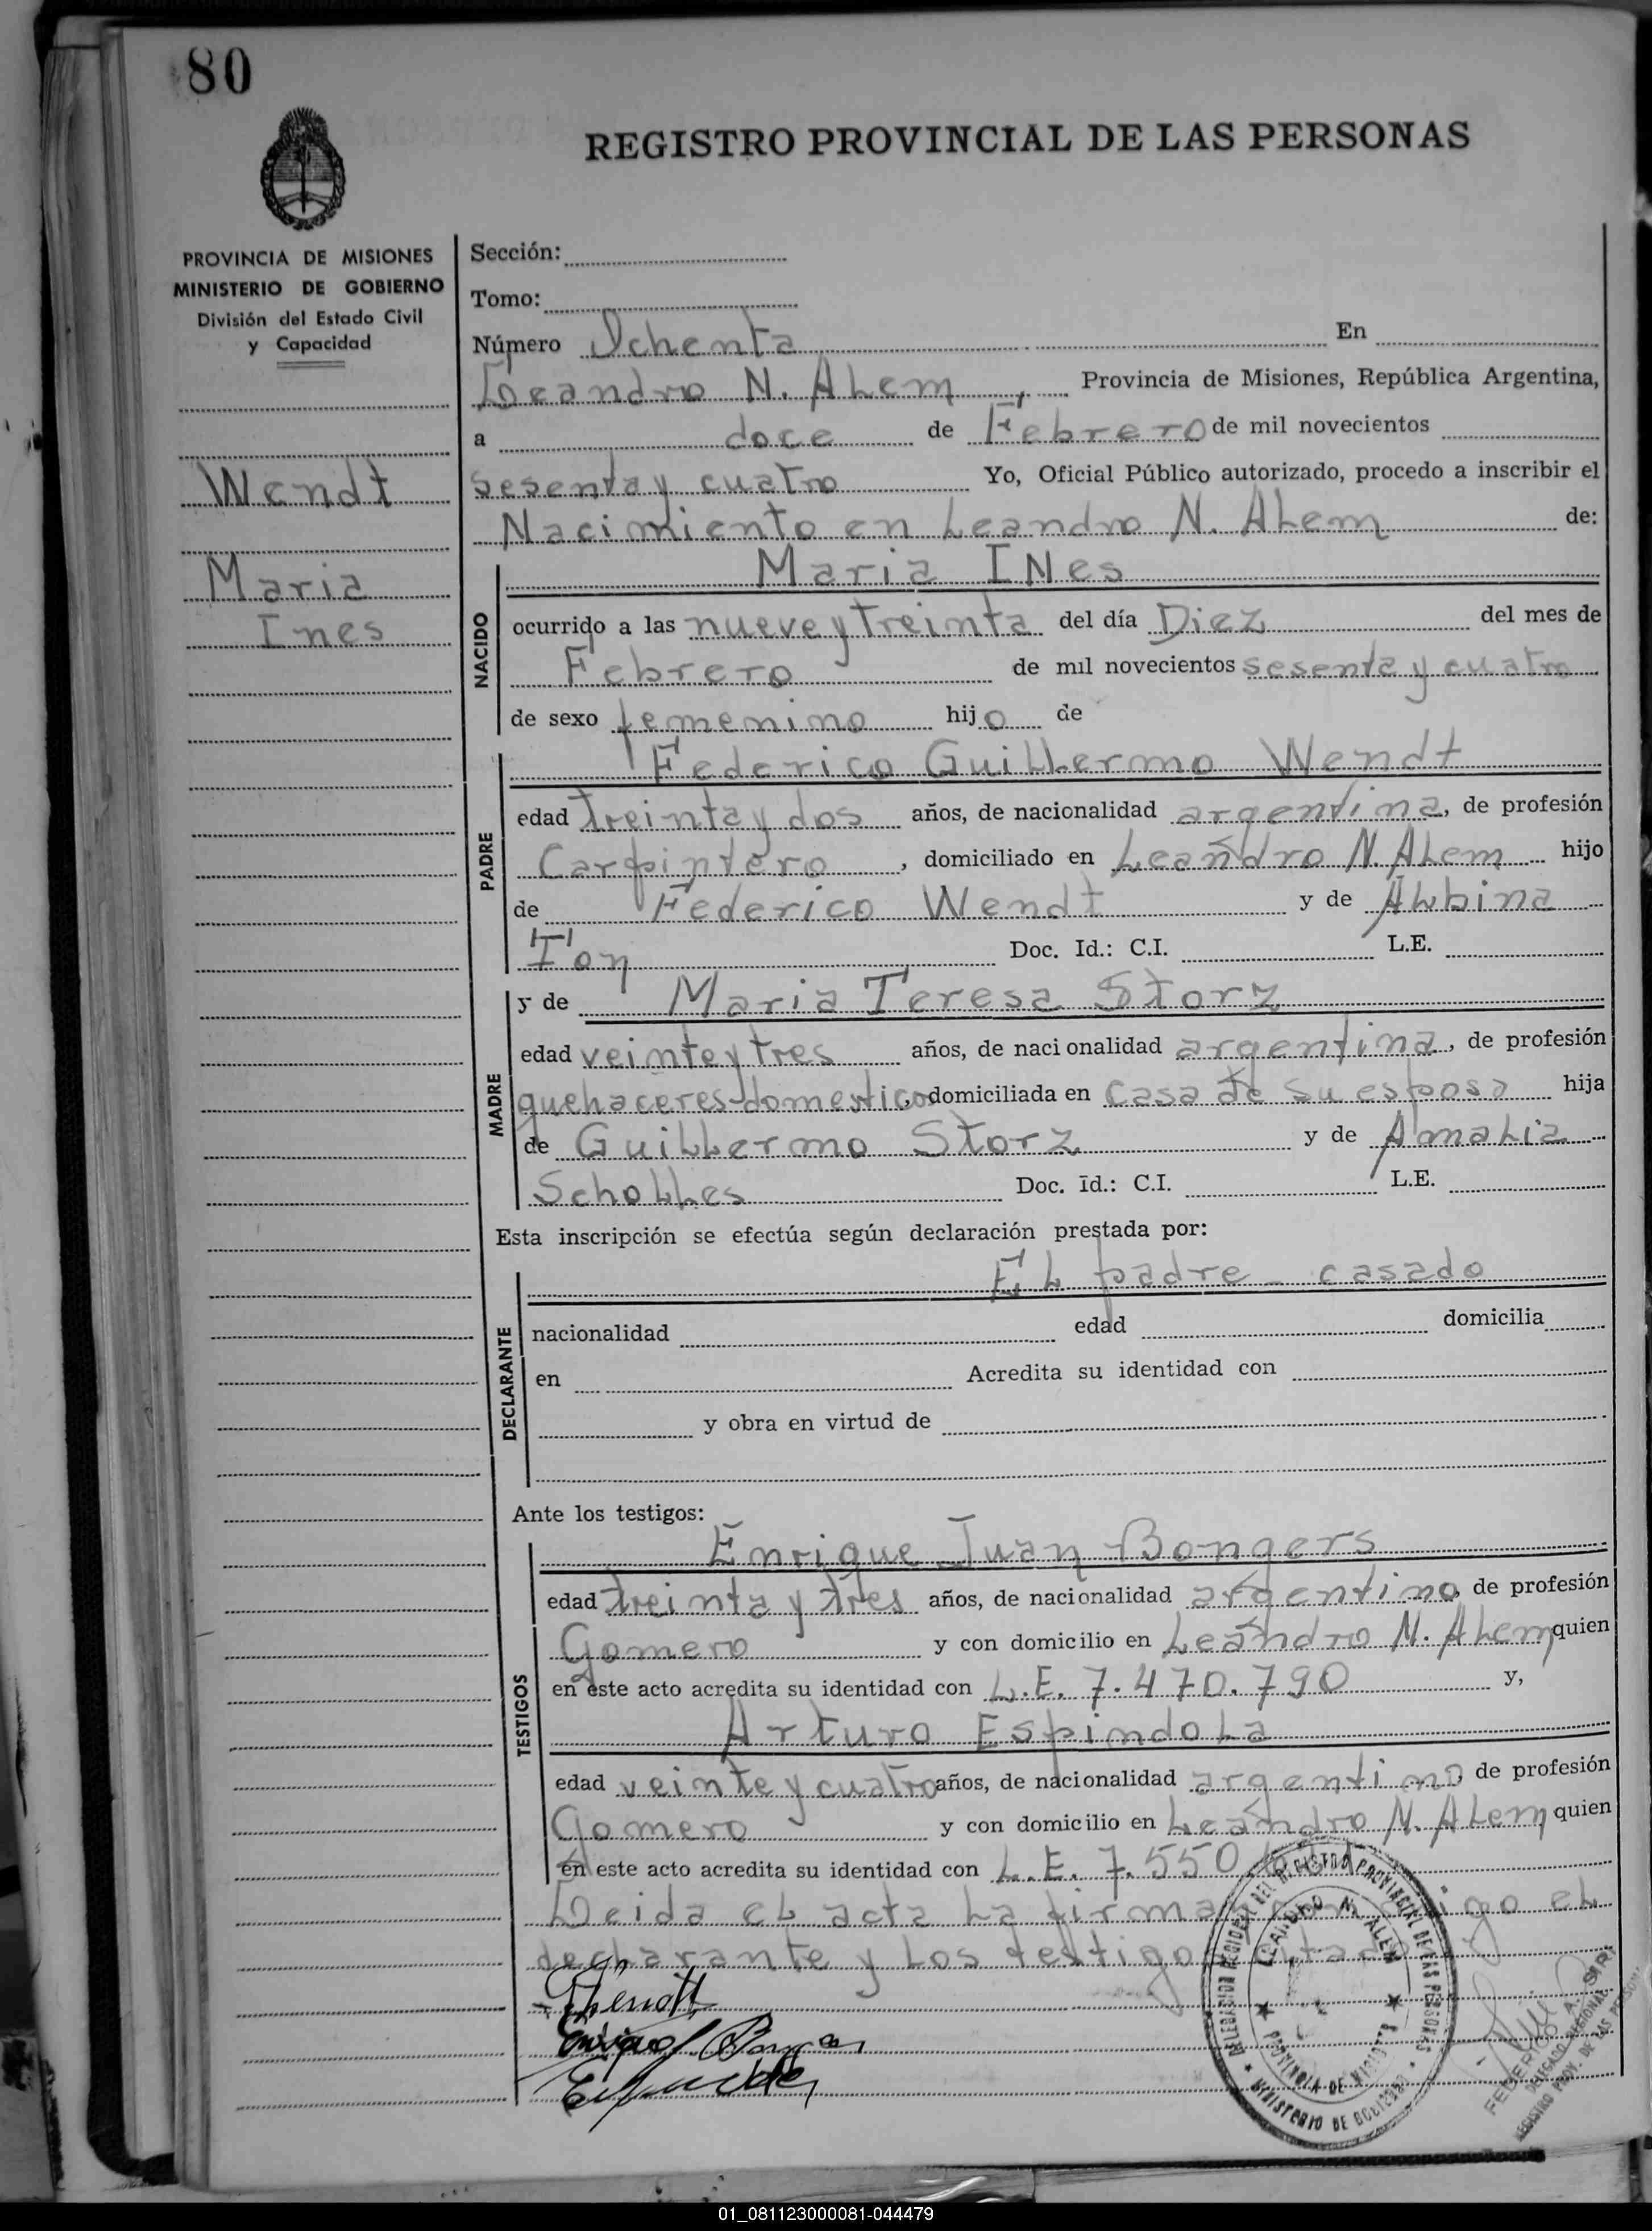 80
REGISTRO PROVINCIAL DE LAS PERSONAS
PROVINCIA DE MISIONES
MINISTERIO DE GOBIERNO
División del Estado Civil
y Capacidad
Wendt
Maria
Ines
Sección:
Tomo:
Número Ochenta En
Leandro N. Alem, Provincia de Misiones, República Argentina,
a doce de Febrero de mil novecientos
sesenta y cuatro Yo, Oficial Público autorizado, procedo a inscribir el
Nacimiento en Leandro N. Alem de:
NACIDO
Maria INes
ocurrido a las nueve y treinta del día Diez del mes de
Febrero de mil novecientos sesenta y cuatro
de sexo femenino hijo de
PADRE
Federico Guillermo Wendt
edad treinta y dos años, de nacionalidad argentina, de profesión
Carpintero, domiciliado en Leandro N. Alem hijo
de Federico Wendt y de Albina
Ton Doc. Id.: C.I. L.E.
MADRE
y de Maria Teresa Storz
edad veinte y tres años, de nacionalidad argentina, de profesión
quehaceres domesticos, domiciliada en casa de su esposo hija
de Guillermo Storz y de Amalia
Scholles Doc. id.: C.I. L.E.
Esta inscripción se efectúa según declaración prestada por:
DECLARANTE
El padre - casado
nacionalidad edad domicilia
en Acredita su identidad con
y obra en virtud de
Ante los testigos:
TESTIGOS
Enrique Juan Bongers
edad treinta y tres años, de nacionalidad argentino, de profesión
Gomero y con domicilio en Leandro N. Alem quien
en este acto acredita su identidad con L.E. 7.470.790 y,
Arturo Espindola
edad veinte y cuatro años, de nacionalidad argentino, de profesión
Gomero y con domicilio en Leandro N. Alem quien
en este acto acredita su identidad con L.E. 7.550
Leida el acta la firman el
declarante y los testigos
DELEGACION REGIONAL DEL REGISTRO PROVINCIAL DE LAS PERSONAS
LEANDRO N. ALEM
PROVINCIA DE MISIONES
MINISTERIO DE GOBIERNO
DELEGADO REGIONAL
01_081123000081-044479